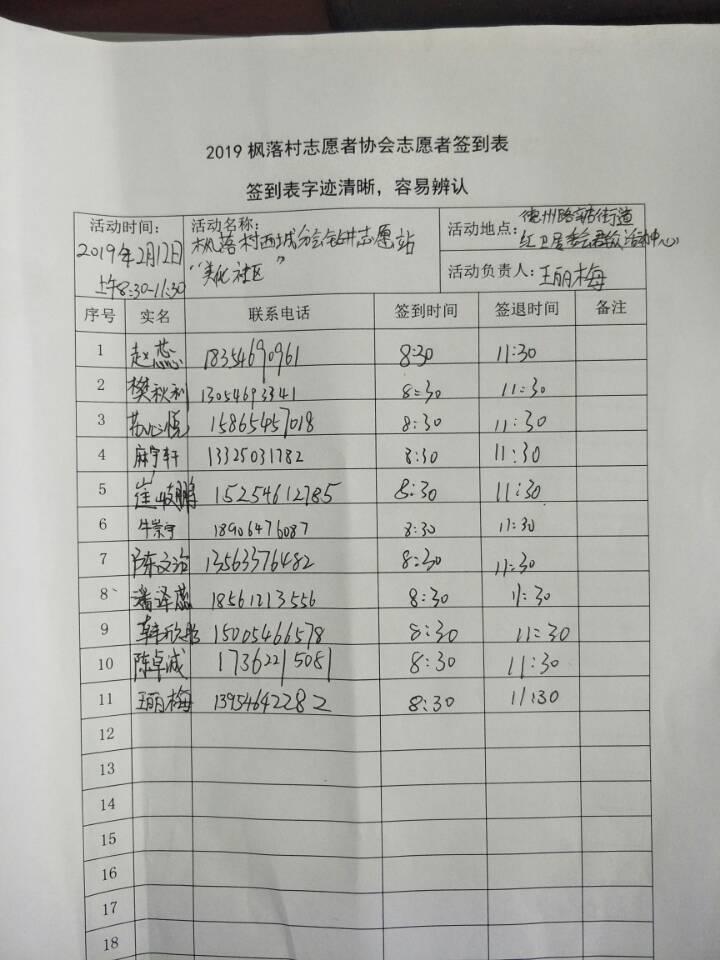 2019 枫落村志愿者协会志愿者签到表
签到表字迹清晰，容易辨认
活动时间： 2019年2月12日 上午8:30-11:30
活动名称： 枫落村西城分会钻井志愿站 "美化社区"
活动地点： 街道 红卫居委会群众活动中心
活动负责人：王丽梅
序号 实名 联系电话 签到时间 签退时间 备注
1 赵蕊 18354690961 8:30 11:30
2 樊秋利 13054693341 8:30 11:30
3 苏心悦 15865457018 8:30 11:30
4 麻宇轩 13325031782 8:30 11:30
5 崔岐鹏 15254612785 8:30 11:30
6 牛崇宇 18906476087 8:30 11:30
7 陈文治 13563376482 8:30 11:30
8 潘泽蕊 18561213556 8:30 11:30
9 韩欣彤 15005466578 8:30 11:30
10 陈卓诚 17362215081 8:30 11:30
11 王丽梅 13954642282 8:30 11:30
12
13
14
15
16
17
18